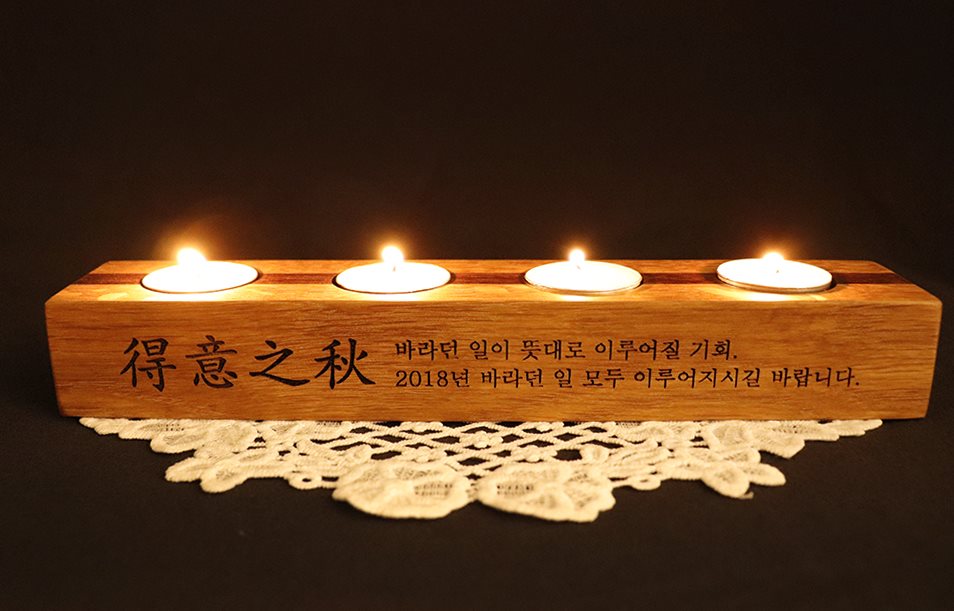 得意之秋
바라던 일이 뜻대로 이루어질 기회.
2018년 바라던 일 모두 이루어지시길 바랍니다.